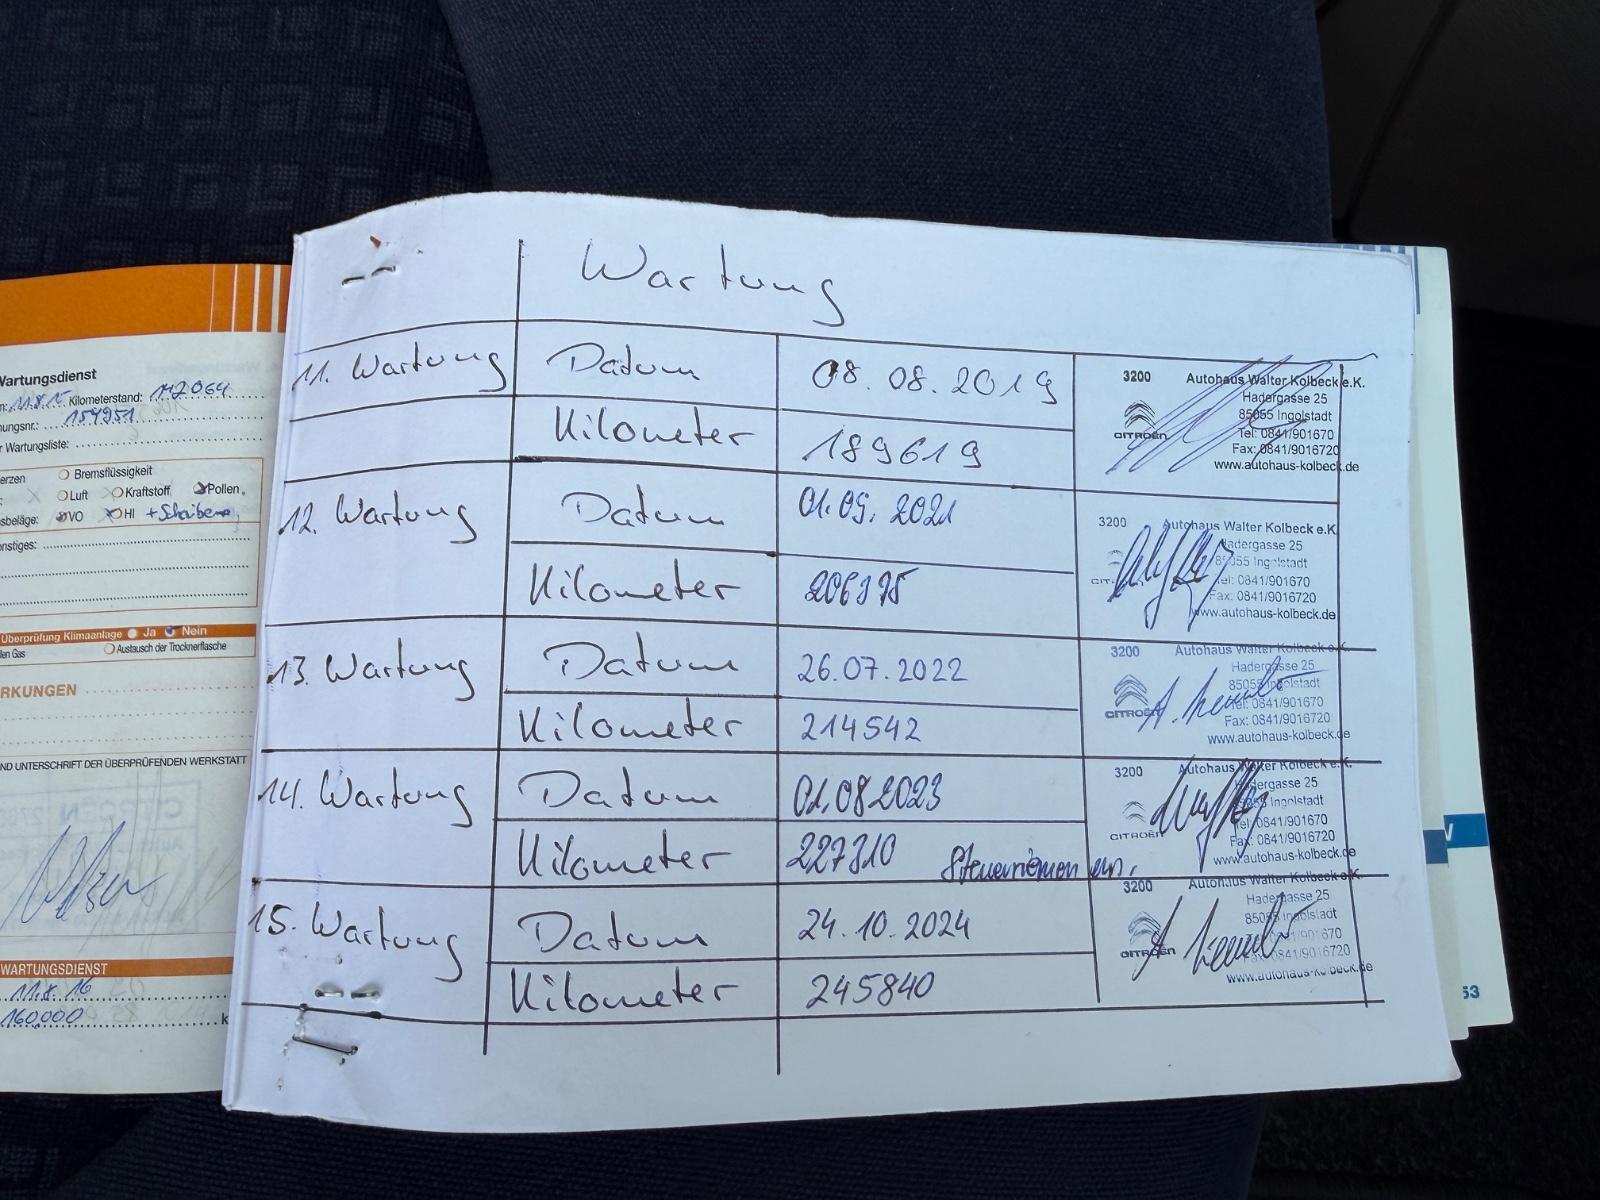 Wartungsdienst
11.8.15 Kilometerstand: 142064
ungsnr.: 154951
r Wartungsliste:
erzen
Bremsflüssigkeit
Luft Kraftstoff Pollen
sbeläge: VO HI + Scheiben
onstiges:
Überprüfung Klimaanlage Ja Nein
len Gas Austausch der Trocknerflasche
RKUNGEN
ND UNTERSCHRIFT DER ÜBERPRÜFENDEN WERKSTATT
WARTUNGSDIENST
11.8.16
160.000 k
Wartung
11. Wartung Datum 08.08.2019
Kilometer 189619
3200 Autohaus Walter Kolbeck e.K.
Hadergasse 25
85055 Ingolstadt
CITROËN Tel: 0841/901670
Fax: 0841/9016720
www.autohaus-kolbeck.de
12. Wartung Datum 01.09.2021
Kilometer
3200 Autohaus Walter Kolbeck e.K.
Hadergasse 25
85055 Ingolstadt
CIT Tel: 0841/901670
Fax: 0841/9016720
www.autohaus-kolbeck.de
13. Wartung Datum 26.07.2022
Kilometer 214542
3200 Autohaus Walter Kolbeck e.K.
Hadergasse 25
85055 Ingolstadt
CITROËN Tel: 0841/901670
Fax: 0841/9016720
www.autohaus-kolbeck.de
14. Wartung Datum 01.08.2023
Kilometer 227310
3200 Autohaus Walter Kolbeck e.K.
Hadergasse 25
85055 Ingolstadt
CITROËN Tel: 0841/901670
Fax: 0841/9016720
www.autohaus-kolbeck.de
15. Wartung Datum 24.10.2024
Kilometer 245840
3200 Autohaus Walter Kolbeck e.K.
Hadergasse 25
85055 Ingolstadt
CITROËN 0841/901670
Fax: 0841/9016720
www.autohaus-kolbeck.de
53